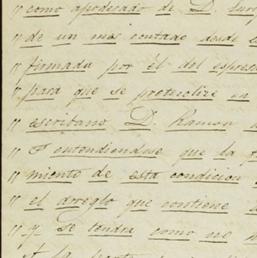 " como apoderado de D.
" de un mes contado desde
" firmada por él del espres
" para que se protocolice en
" escribano D. Ramon
" Entendiendose que la
" miento de esta condicion
" el arreglo que contiene
" y se tendra como no